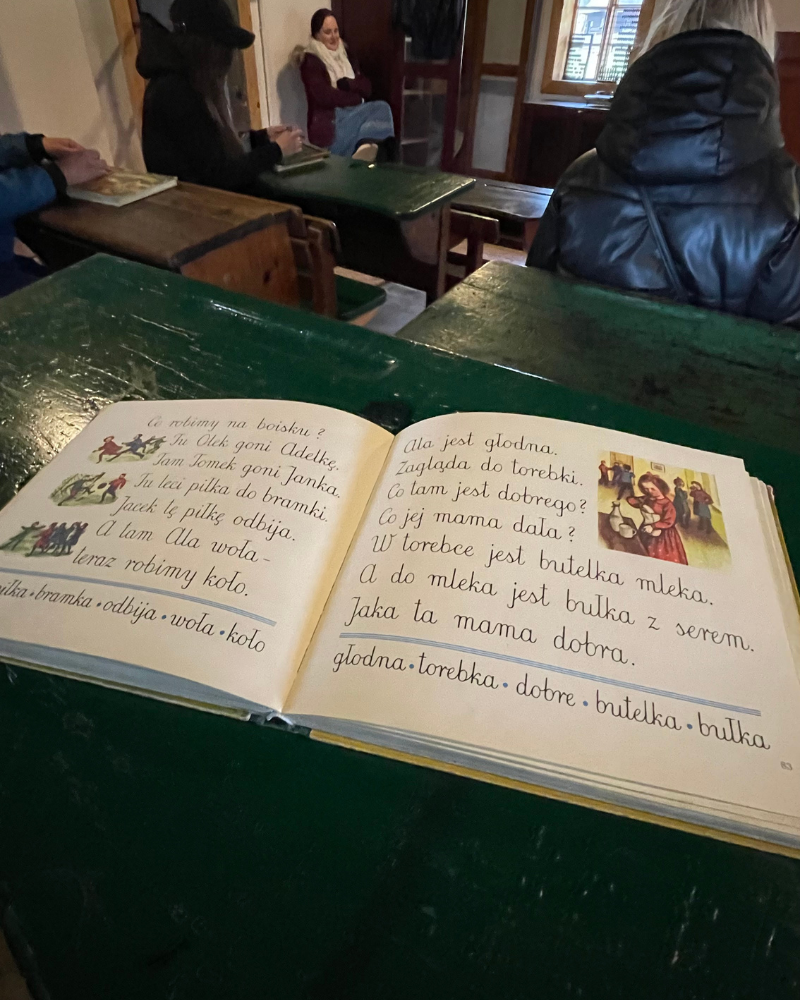 Co robimy na boisku?
Tu Olek goni Adelkę.
Tam Tomek goni Janka.
Tu leci piłka do bramki.
Jacek tę piłkę odbija.
A tam Ala woła -
teraz robimy koło.
piłka • bramka • odbija • woła • koło
Ala jest głodna.
Zagląda do torebki.
Co tam jest dobrego?
Co jej mama dała?
W torebce jest butelka mleka.
A do mleka jest bułka z serem.
Jaka ta mama dobra.
głodna • torebka • dobre • butelka • bułka
83